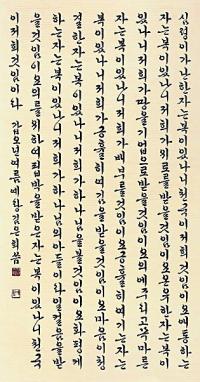 심령이가난한자는복이있나니천국이저희것임이요애통하는
자는복이있나니저희가위로를받을것임이요온유한자는복이
있나니저희가땅을기업으로받을것임이요의에주리고목마른
자는복이있나니저희가배부를것임이요긍휼히여기는자는
복이있나니저희가긍휼히여김을받을것임이요마음이청
결한자는복이있나니저희가하나님을볼것임이요화평케
하는자는복이있나니저희가하나님의아들이라일컬음을받
을것임이요의를위하여핍박을받은자는복이있나니천국
이저희것임이라 갑오년여름에 은희 씀